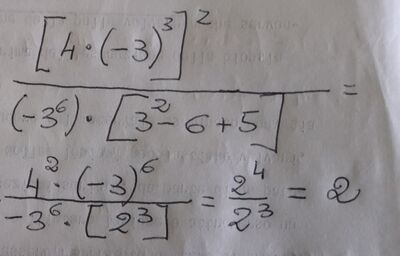 [4·(-3)³]²
(-3⁶)·[3²-6+5] =
4²·(-3)⁶
-3⁶·[2³] = 2⁴/2³ = 2